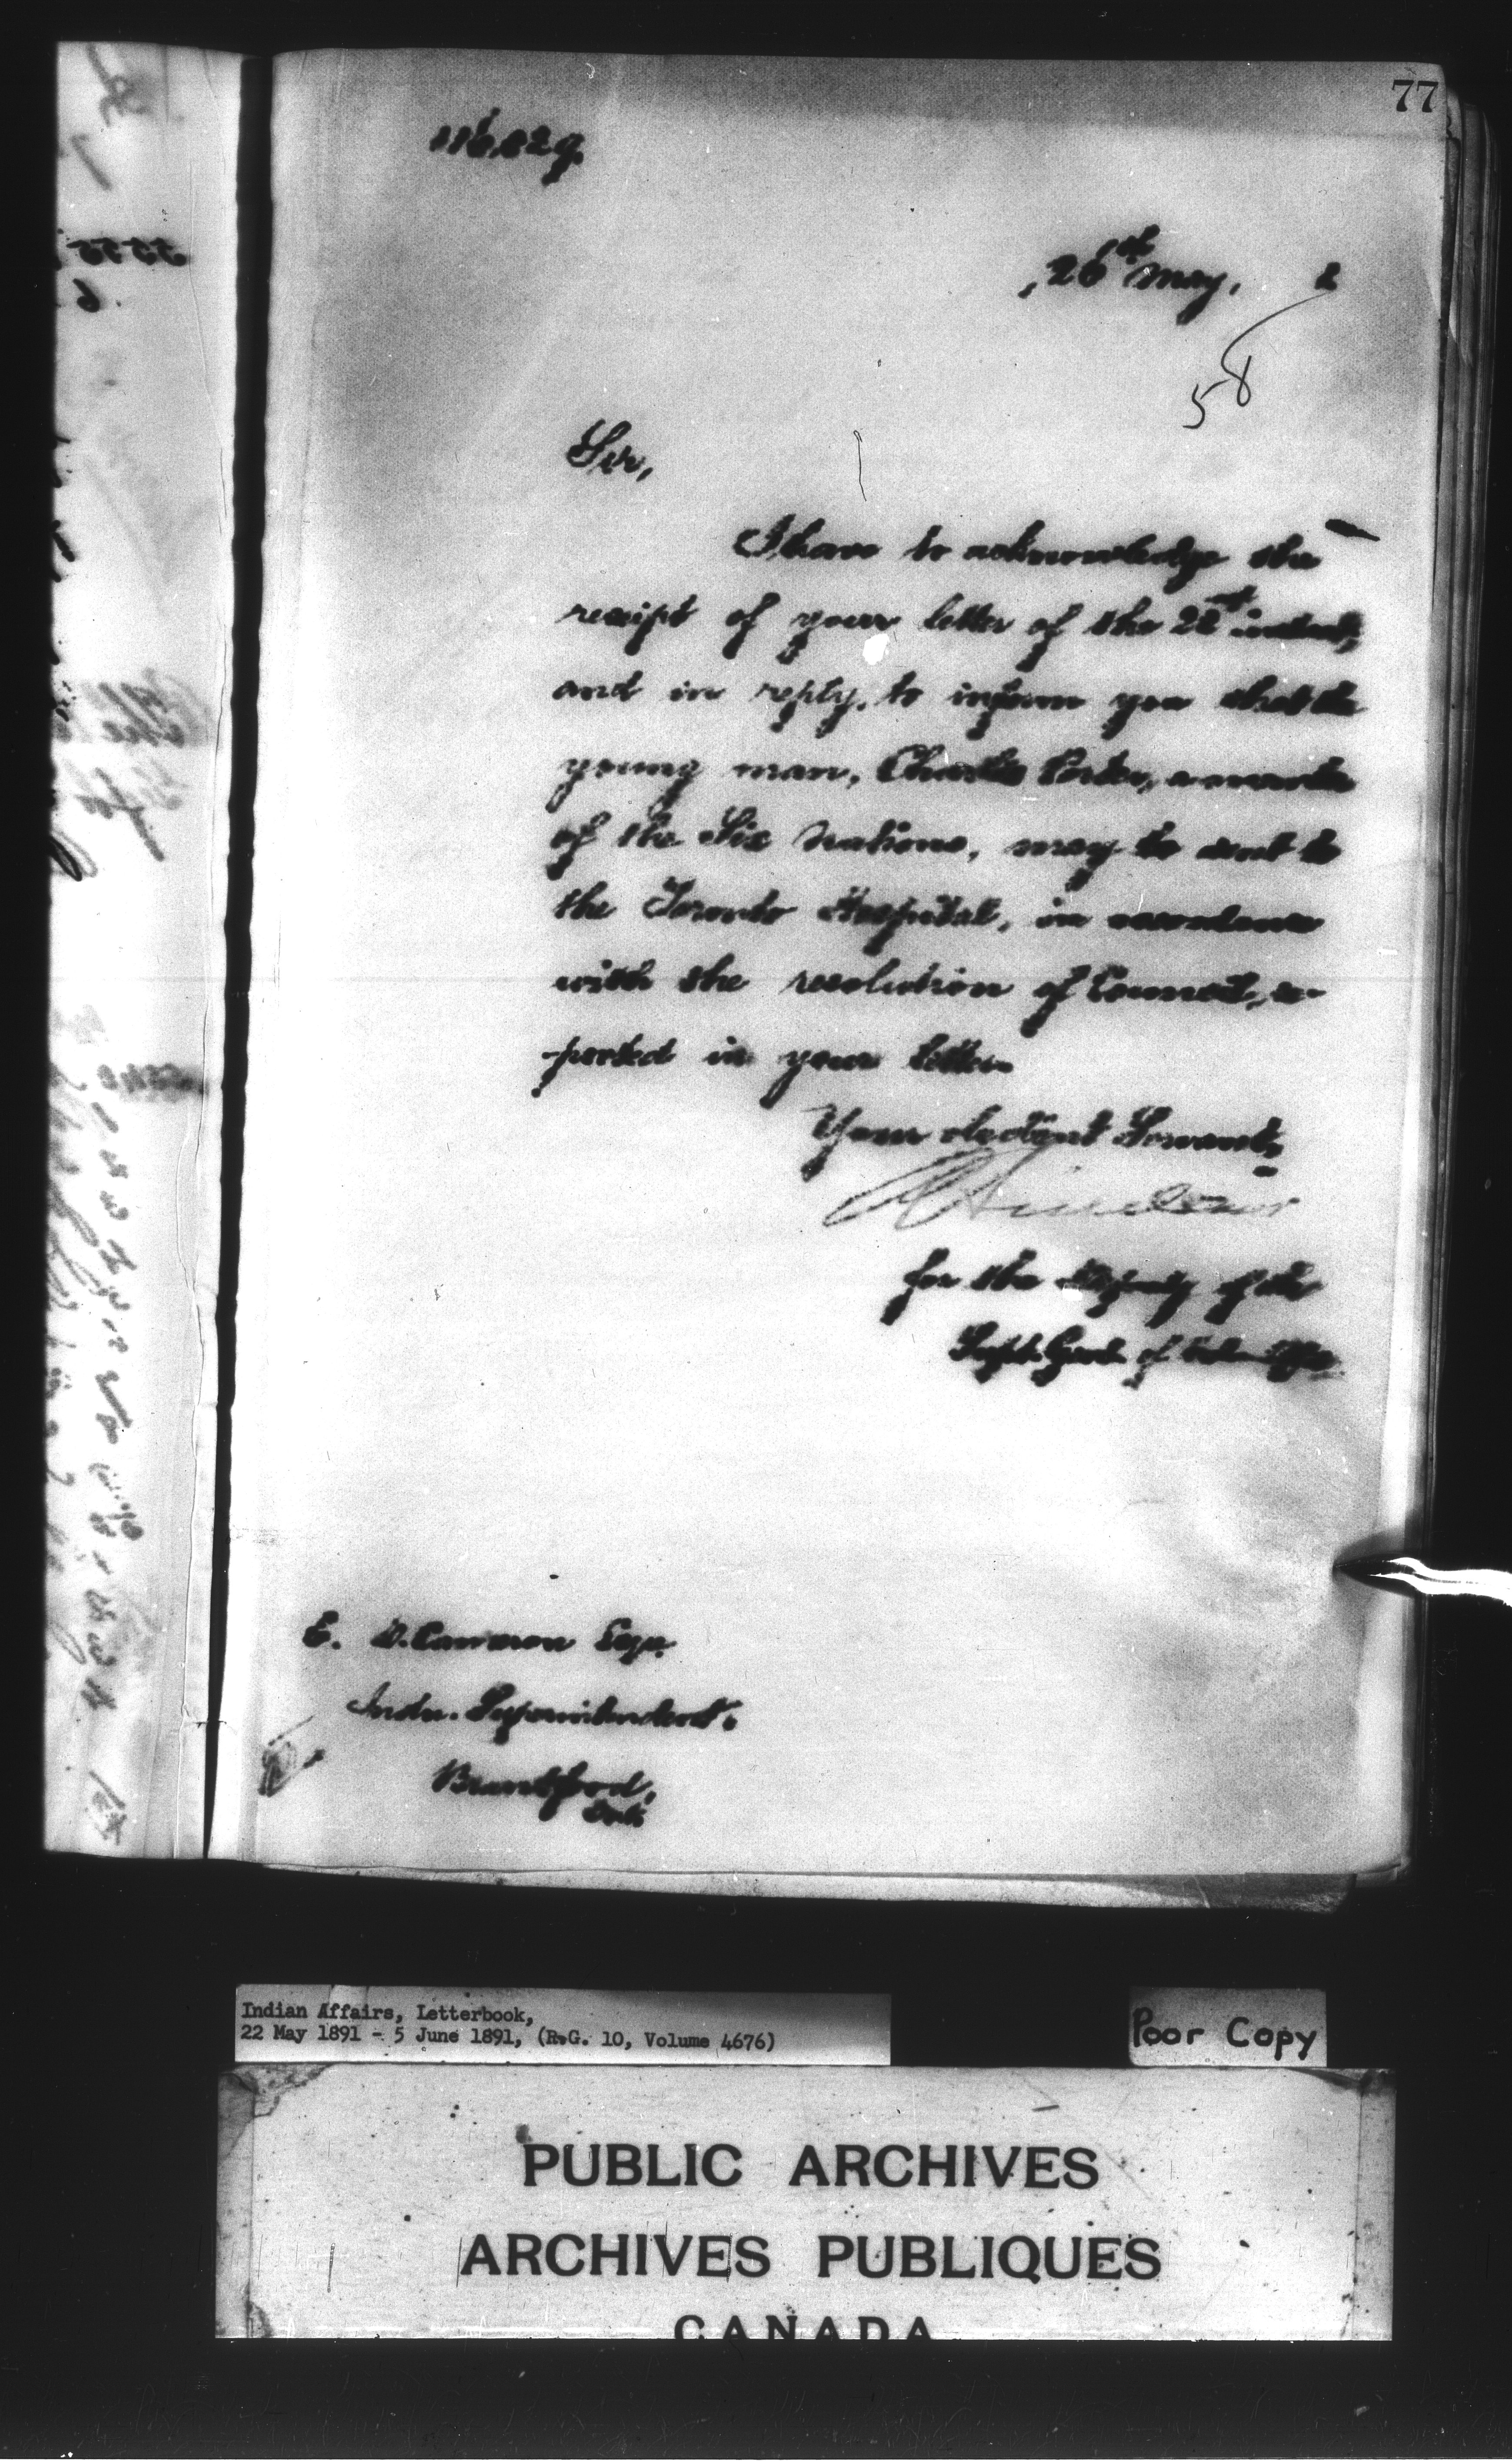 77
116,829.
26th May, 1
58
Sir,
I have to acknowledge the
receipt of your letter of the 22nd instant,
and in reply, to inform you that the
young man, Charles Porter, a member
of the Six Nations, may be sent to
the Toronto Hospital, in accordance
with the resolution of Council, re-
ported in your letter.
Your obedient Servant,
for the Deputy of the
Supt. Genl. of Indn. Affrs.
E. D. Cameron Esqr.
Indn. Superintendent,
Brantford,
Ont.
Indian Affairs, Letterbook,
22 May 1891 - 5 June 1891, (R.G. 10, Volume 4676)
Poor Copy
PUBLIC ARCHIVES
ARCHIVES PUBLIQUES
CANADA